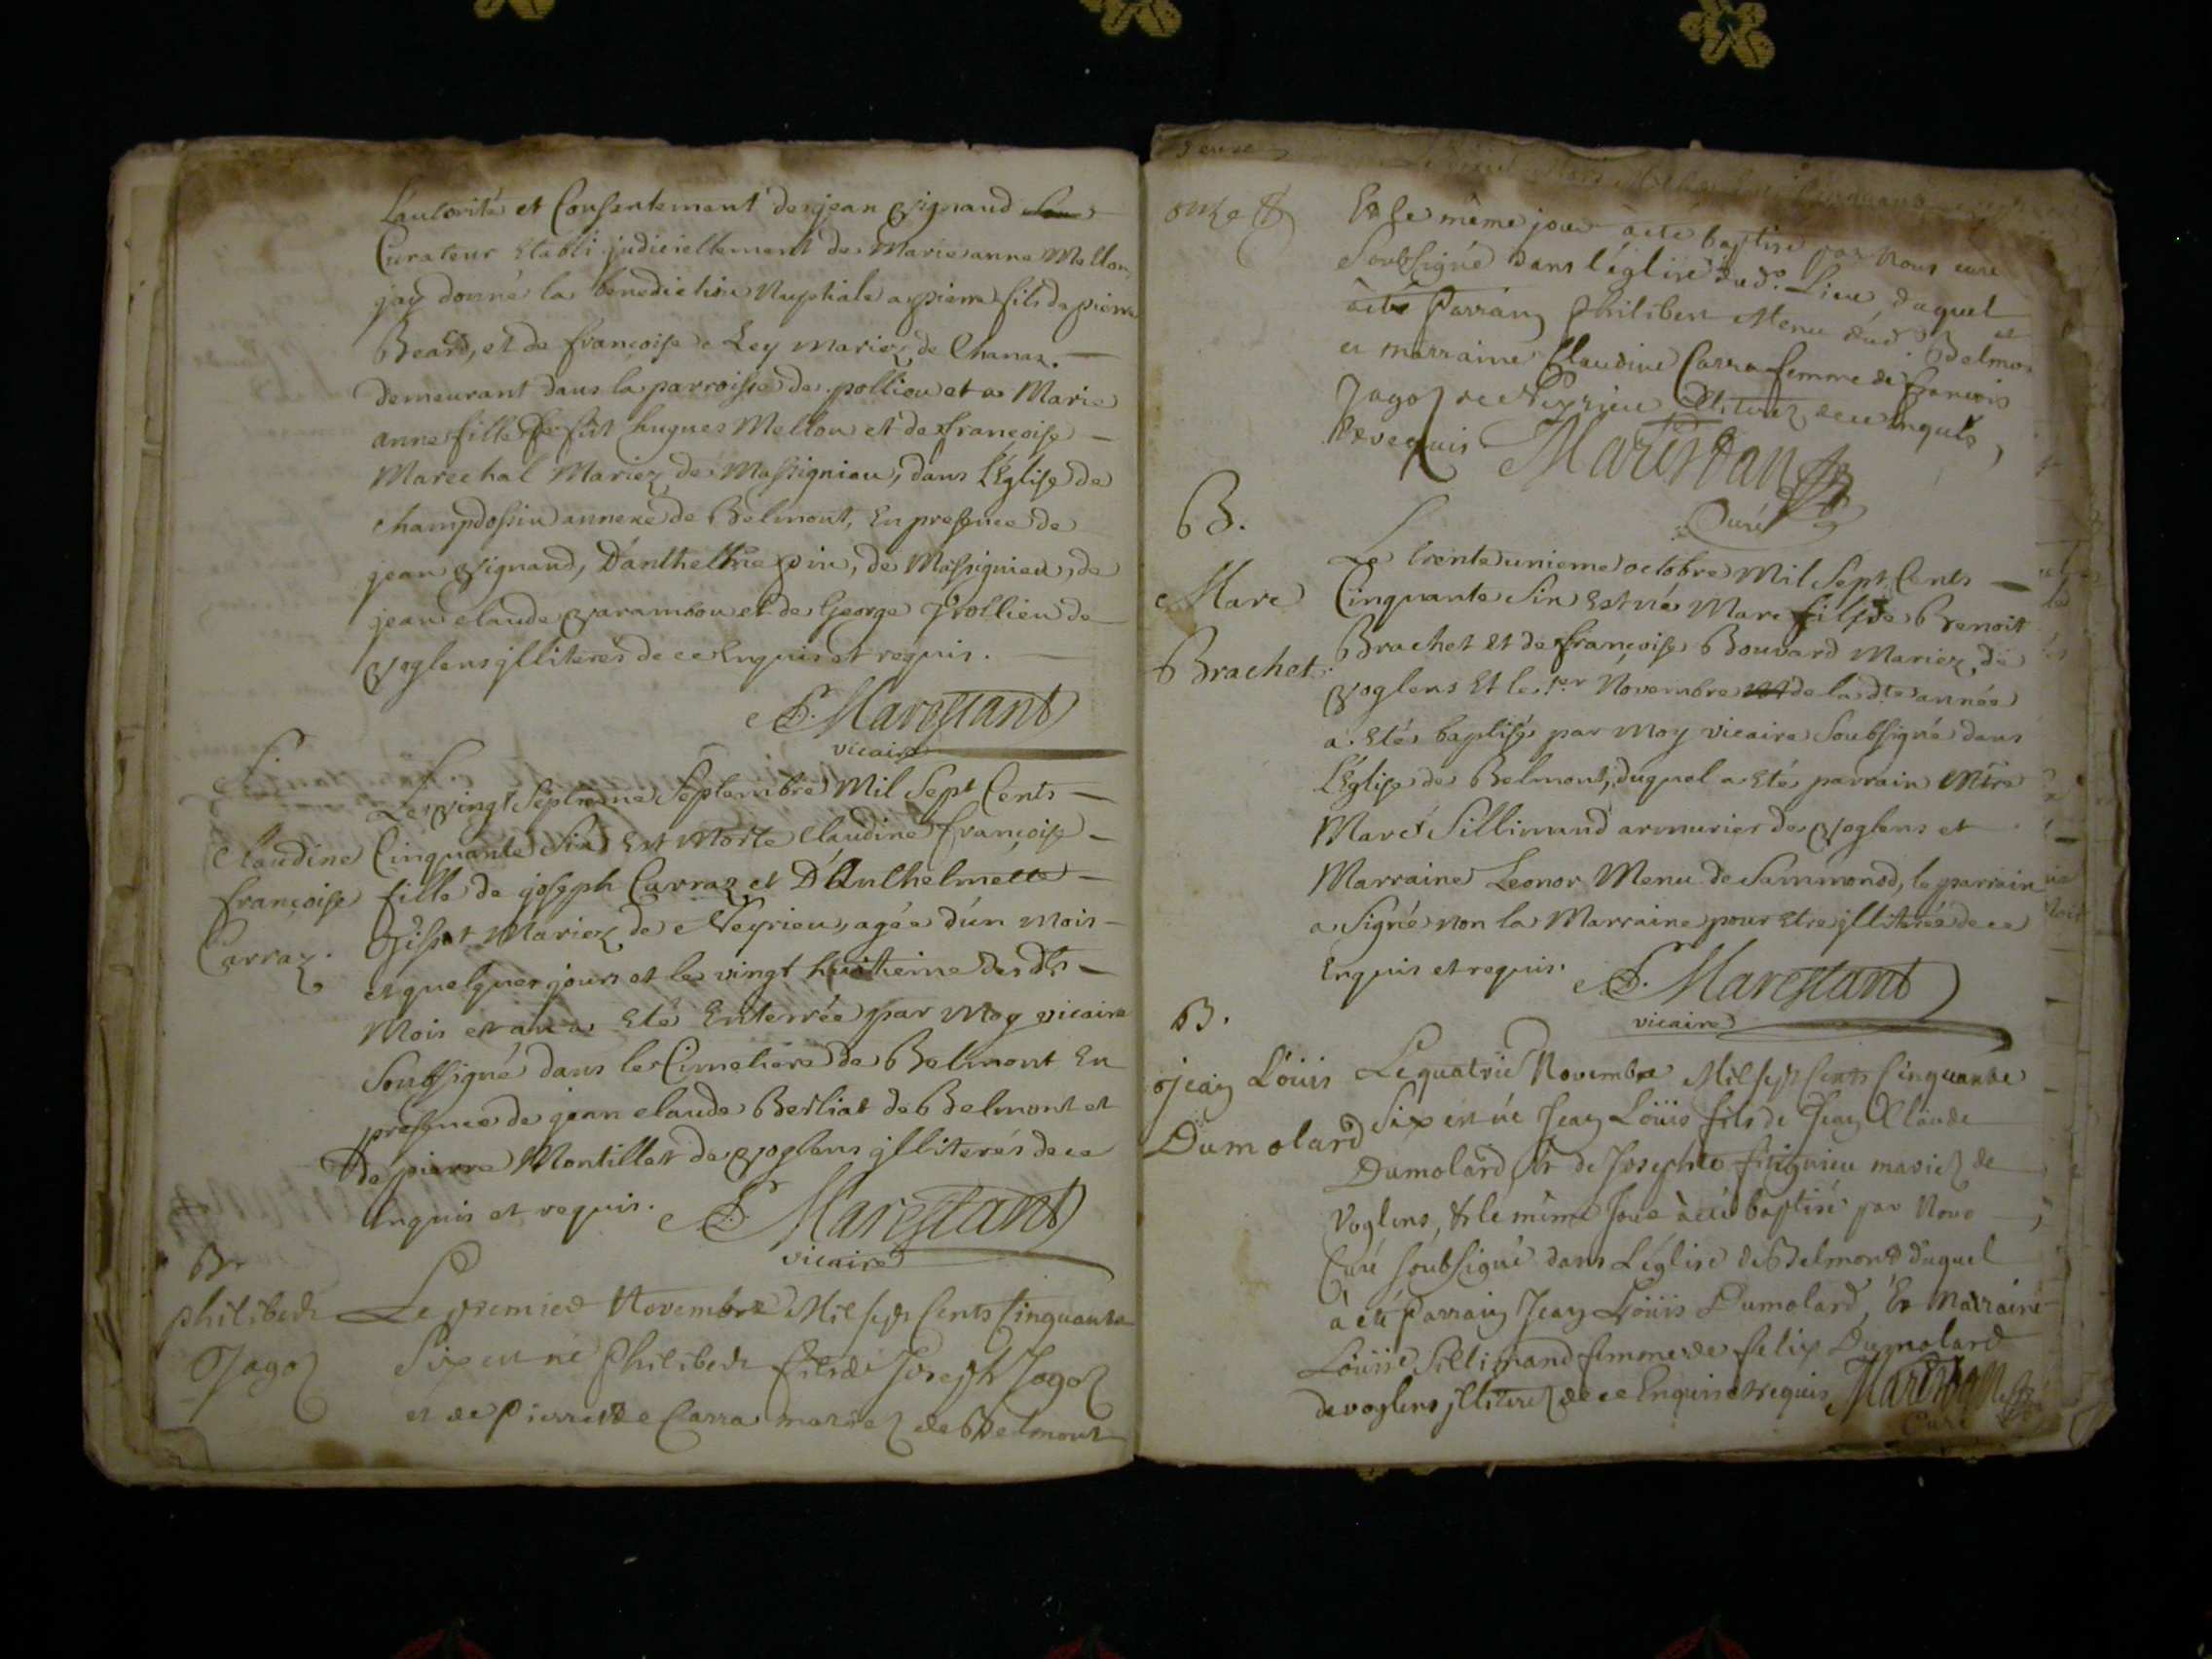 L'autorité et Consentement de jean Vignand
Curateur Etabli judiciellement de Marie anne Mellon,
jay donné la benediction Nuptiale a pierre fils de pierre
Beard, et de françoise Ley mariez de Chanaz.
demeurant dans la parroisse de pollieu et a Marie
anne fille de fût hugues Mellon et de françoise
Marechal Mariez de Massignieu, dans l'Eglise de
champdossin annexe de Belmont, En presence de
jean Vignand, D'anthelme pin, de Massignieu, de
jean claude Varambon et de George Trollieu de
Voglens jlliterés de ce Enquis et requis.
Marestant
vicaire
Le Vingt Septieme Septembre Mil Sept Cents
Claudine Cinquante Six Est Morte Claudine françoise
françoise fille de joseph Carraz et D'Anthelmette
Carraz. Mariez de Neyrieu, agée d'ún mois
et quelques jours et le vingt huitieme des dts
Mois et an a Eté Enterrée par Moy vicaire
Soubsigné dans le Cimetiere de Belmont En
presence de jean claude Berliat de Belmont et
de pierre Montillet de Voglens jlliterés de ce
Enquis et requis. Marestant
vicaire
B.
philibert Le premier Novembre Mil sept Cents Cinquante
Jagoz Six est né Philibert fils de Joseph Jagoz
et de Pierrette Carra mariez de Belmont
Et le même jour a eté baptisé par Nous curé
Soubsigné dans l'église dud. Lieu, duquel
a eté Parrain Philibert Menu dud. Belmont
et marraine Claudine Carra femme de françois
Jagoz de Neyrieu Illiterez de ce enquis
et requis Marestan
Curé
B.
Le trente unieme octobre Mil Sept Cents
Marc Cinquante Six Est né Marc fils de Benoit
Brachet. Brachet et de françoise Bouvard Mariez de
Voglens Et le 1er Novembre de la dte année
a Eté baptisé par Moy vicaire Soubsigné dans
l'Eglise de Belmont, duquel a Eté parrain Mtre
Marc Sillimand armurier de Voglens et
Marraine Leonor Menu de Sammonod, le parrain
a Signé non la Marraine pour Etre jlliterée de ce
Enquis et requis. Marestant
vicaire
B.
Jean Loüis Le quatrie Novembre Mil sept Cents Cinquante
Dumolard Six est né Jean Loüis fils de Jean Claude
Dumolard et de Josephte fitignieu mariez de
Voglens, & le même Jour à eté baptisé par Nous
Curé soubsigné dans L'église de Belmont duquel
à eté Parrain Jean Loüis Dumolard, Et Marraine
Loüise Sillimand femme de felix Dumolard
de voglens jlliterez de ce Enquis et requis Marestan
Curé